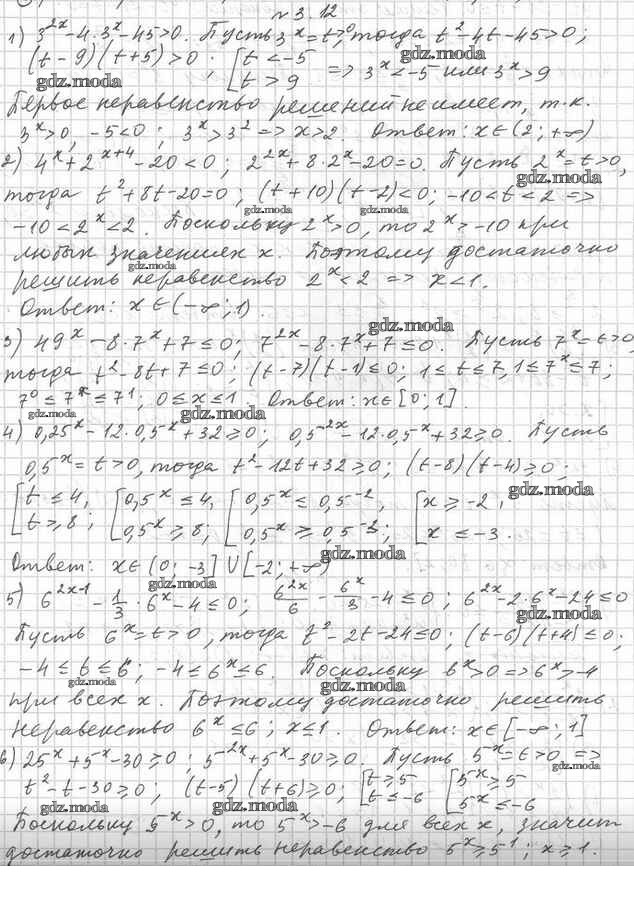 №3.12
1) 3^{2x}-4·3^x-45>0. Пусть 3^x=t>0, тогда t^2-4t-45>0;
(t-9)(t+5)>0; [t<-5 t>9 => 3^x<-5 или 3^x>9
gdz.moda gdz.moda
Первое неравенство решений не имеет, т.к.
3^x>0, -5<0; 3^x>3^2 => x>2. Ответ: x∈(2;+∞)
2) 4^x+2^{x+4}-20<0; 2^{2x}+8·2^x-20=0. Пусть 2^x=t>0,
gdz.moda
тогда t^2+8t-20=0; (t+10)(t-2)<0; -10<t<2 =>
gdz.moda gdz.moda
-10<2^x<2. Поскольку 2^x>0, то 2^x>-10 при
любых значениях x. Поэтому достаточно
gdz.moda
решить неравенство 2^x<2 => x<1.
Ответ: x∈(-∞;1).
gdz.moda
3) 49^x-8·7^x+7≤0; 7^{2x}-8·7^x+7≤0. Пусть 7^x=t>0,
тогда t^2-8t+7≤0; (t-7)(t-1)≤0; 1≤t≤7, 1≤7^x≤7;
7^0≤7^x≤7^1; 0≤x≤1. Ответ: x∈[0;1]
gdz.moda gdz.moda
4) 0,25^x-12·0,5^x+32≥0; 0,5^{2x}-12·0,5^x+32≥0. Пусть
0,5^x=t>0, тогда t^2-12t+32≥0; (t-8)(t-4)≥0;
gdz.moda
[t≤4, t≥8; [0,5^x≤4, 0,5^x≥8; [0,5^x≤0,5^{-2}, 0,5^x≥0,5^{-3}; [x≥-2, x≤-3.
gdz.moda
Ответ: x∈(0;-3]U[-2;+∞)
gdz.moda
5) 6^{2x-1}-1/3·6^x-4≤0; 6^{2x}/6-6^x/3-4≤0; 6^{2x}-2·6^x-24≤0
gdz.moda
Пусть 6^x=t>0, тогда t^2-2t-24≤0; (t-6)(t+4)≤0;
-4≤t≤6; -4≤6^x≤6. Поскольку 6^x>0 => 6^x>-4
gdz.moda gdz.moda
при всех x. Поэтому достаточно решить
неравенство 6^x≤6; x≤1. Ответ: x∈[-∞;1]
6) 25^x+5^x-30≥0; 5^{2x}+5^x-30≥0. Пусть 5^x=t>0 =>
gdz.moda
t^2-t-30≥0; (t-5)(t+6)≥0; [t≥5 t≤-6 [5^x≥5 5^x≤-6
gdz.moda gdz.moda
Поскольку 5^x>0, то 5^x>-6 для всех x, значит
достаточно решить неравенство 5^x≥5^1; x≥1.